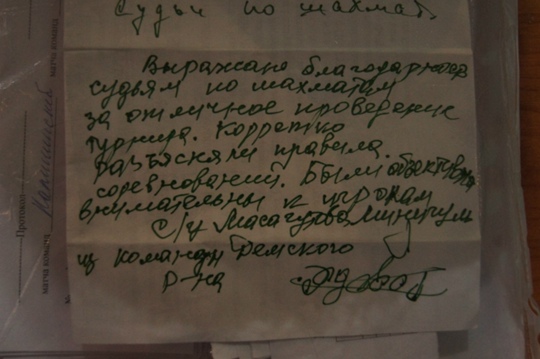 Судьи по шахмат
Выражаю благодарность
судьям по шахматам
за отличное проведение
турнира. Корректно
разъясняли правила
соревнований. Были объективны
внимательны к игрокам
с/у
из команды
р-на
Протокол
матча команд
матча команд